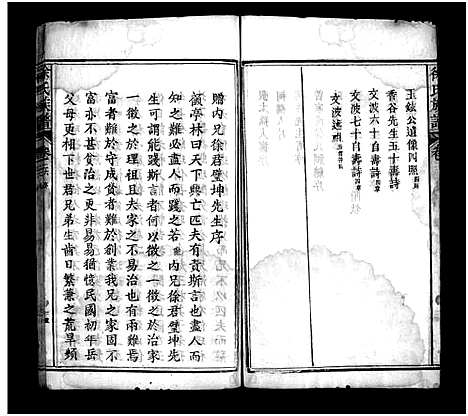 玉鉉公遺像四照
香谷先生五十壽詩
文波六十自壽詩
文波七十自壽詩
文波遺照
內兄徐君璧坤先生序
顧亭林曰天下興亡匹夫有責斯言也盡人而
知之難必盡人而踐之若內兄徐君璧坤先
生可謂能踐斯言者何以徵之一徵之於治家
一徵之於理祖且夫家之不易治也有兩難焉
富者難於守成貧者難於創業我兄之家固不
富亦不甚貧治之更非易易猶憶民國初年岳
父母更相下世君兄弟生齒日繁兼之荒旱頻